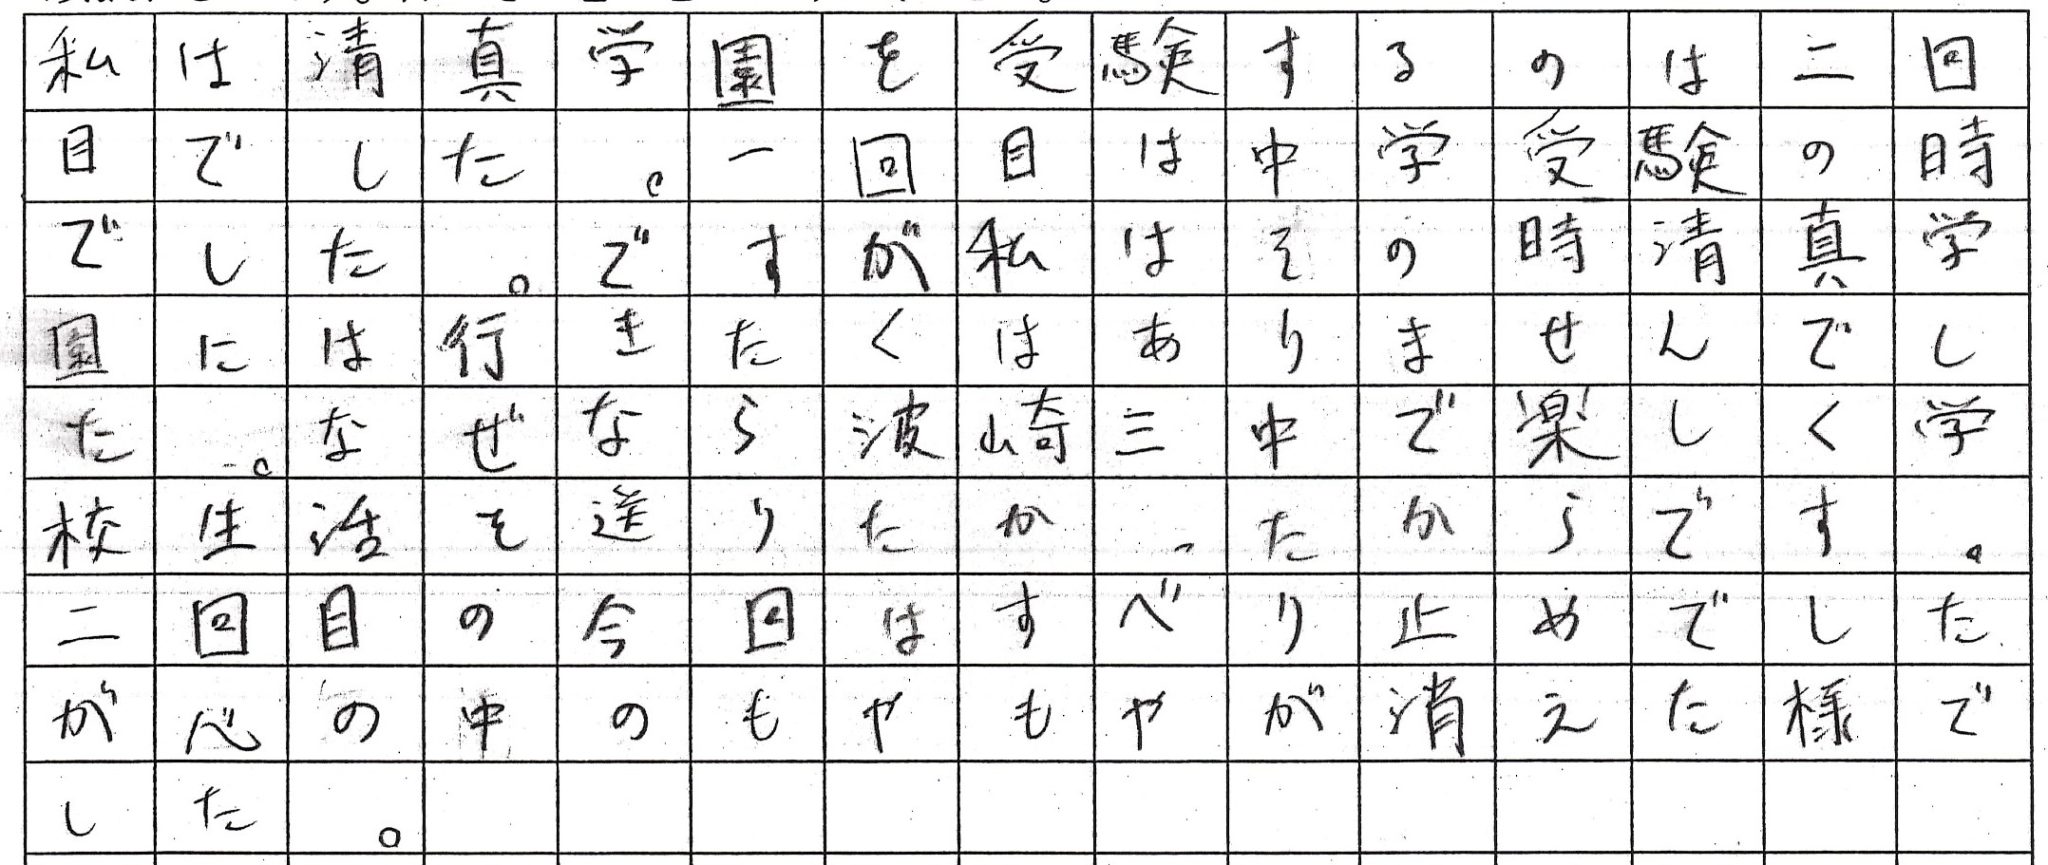 私は清真学園を受験するのは二回
目でした。一回目は中学受験の時
でした。ですが私はその時清真学
園には行きたくはありませんでし
た。なぜなら波崎三中で楽しく学
校生活を送りたかったからです。
二回目の今回はすべり止めでした
が心の中のもやもやが消えた様で
した。